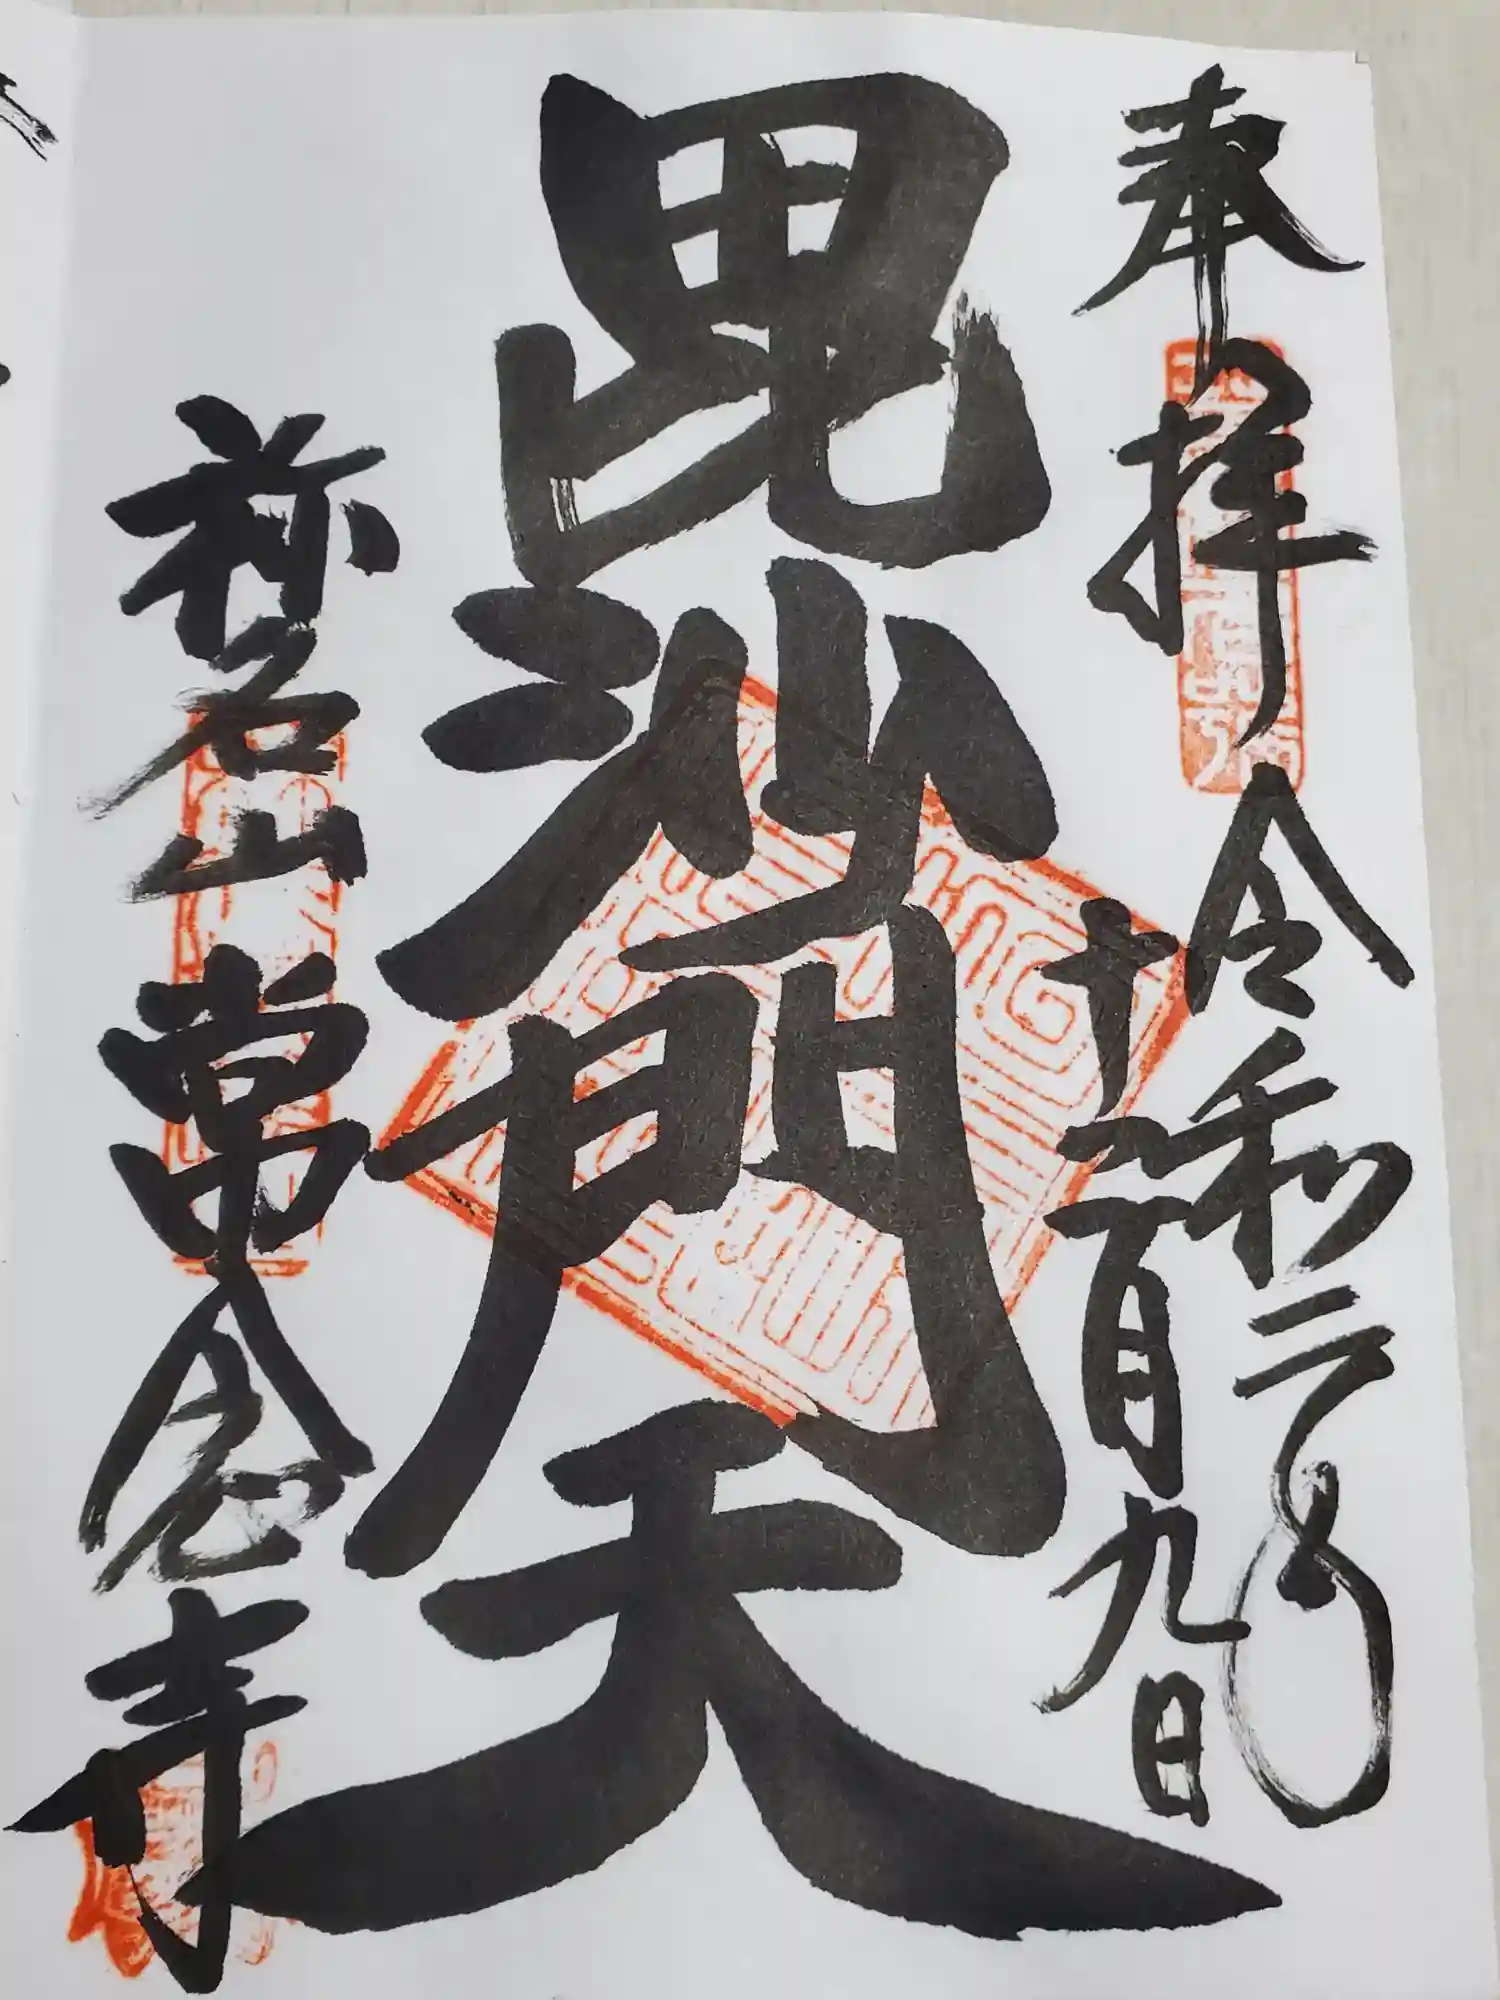 奉拝
令和二年
十二月九日
毘沙門天
稱名山 常念寺